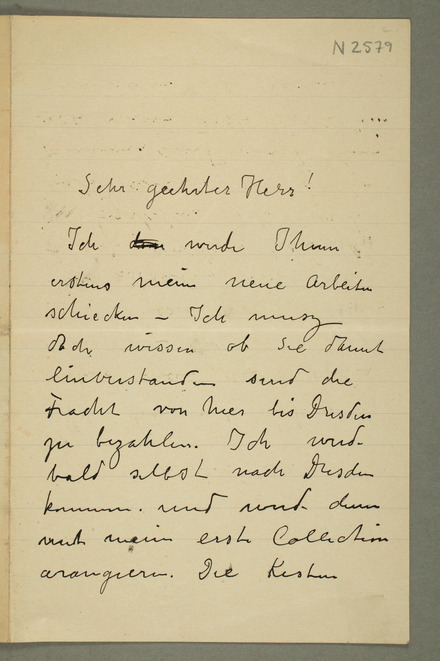 N 2579
Sehr geehrter Herr!
Ich werde Ihnen
erstens meine neue Arbeiten
schicken – Ich musz
doch wissen ob Sie damit
einverstanden sind die
Fracht von hier bis Dresden
zu bezahlen. Ich werde
bald selbst nach Dresden
kommen. und werde dann
mit meine erste Collection
arangieren. Die Kisten